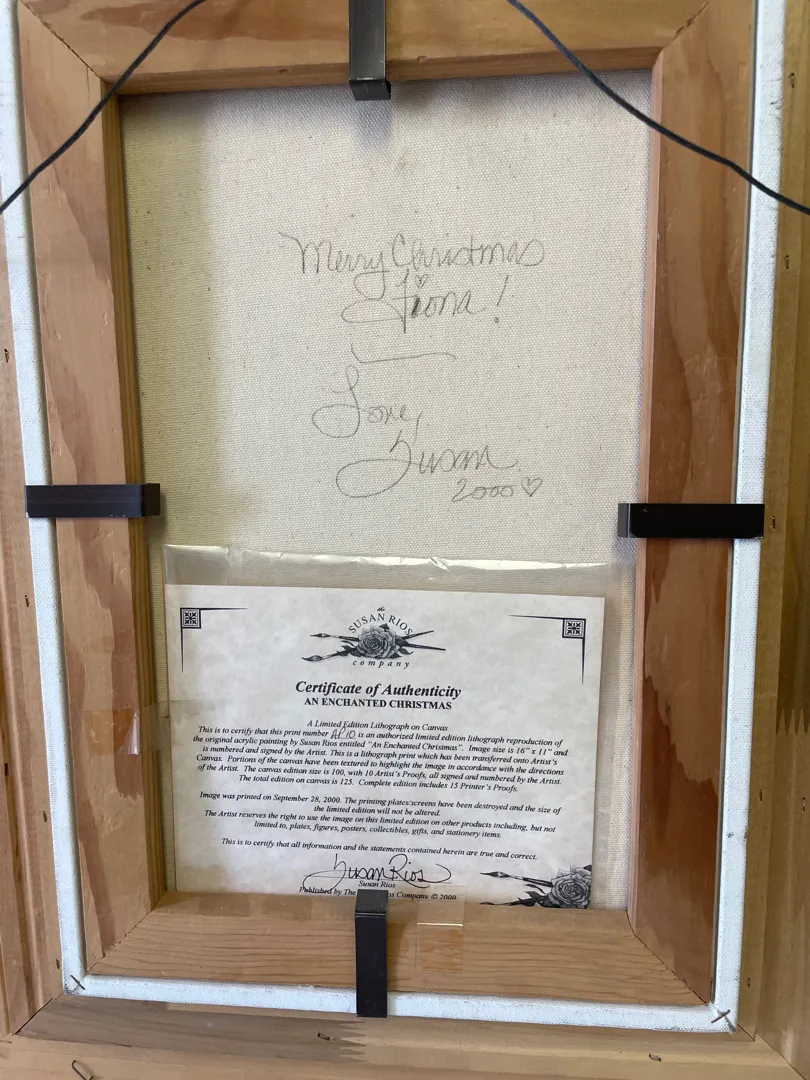 Merry Christmas
Fiona!
Love,
Susan
2000
the
SUSAN RIOS
company
Certificate of Authenticity
AN ENCHANTED CHRISTMAS
A Limited Edition Lithograph on Canvas
This is to certify that this print number AP 10 is an authorized limited edition lithograph reproduction of
the original acrylic painting by Susan Rios entitled "An Enchanted Christmas". Image size is 16" x 11" and
is numbered and signed by the Artist. This is a lithograph print which has been transferred onto Artist's
Canvas. Portions of the canvas have been textured to highlight the image in accordance with the directions
of the Artist. The canvas edition size is 100, with 10 Artist's Proofs, all signed and numbered by the Artist.
The total edition on canvas is 125. Complete edition includes 15 Printer's Proofs.
Image was printed on September 28, 2000. The printing plates/screens have been destroyed and the size of
the limited edition will not be altered.
The Artist reserves the right to use the image on this limited edition on other products including, but not
limited to, plates, figures, posters, collectibles, gifts, and stationery items.
This is to certify that all information and the statements contained herein are true and correct.
Susan Rios
Susan Rios
Published by The ios Company © 2000